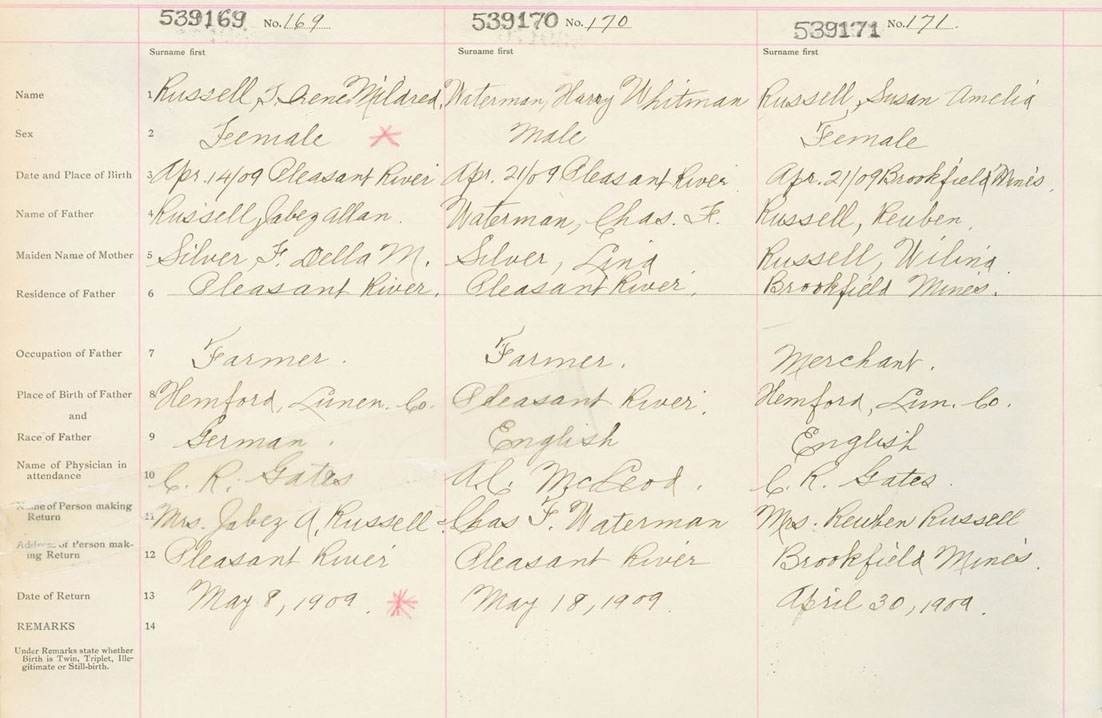 539169 No. 169 539170 No. 170 539171 No. 171
Surname first Surname first Surname first
Name 1 Russell, F. Irene Mildred, Waterman, Harry Whitman Russell, Susan Amelia
Sex 2 Female Male Female
Date and Place of Birth 3 Apr. 14/09 Pleasant River Apr. 21/09 Pleasant River Apr. 21/09 Brookfield Mines.
Name of Father 4 Russell, Jabez Allan. Waterman, Chas. F. Russell, Reuben.
Maiden Name of Mother 5 Silver, F. Della M. Silver, Lina Russell, Wilina
Residence of Father 6 Pleasant River. Pleasant River. Brookfield Mines.
Occupation of Father 7 Farmer. Farmer. Merchant.
Place of Birth of Father 8 Hemford, Lunen. Co. Pleasant River. Hemford, Lun. Co.
and
Race of Father 9 German. English English
Name of Physician in
attendance 10 C. R. Gates McLeod. C. R. Gates
Name of Person making
Return 11 Mrs. Jabez A. Russell Chas F. Waterman Mrs. Reuben Russell
Address of Person mak-
ing Return 12 Pleasant River Pleasant River Brookfield Mines.
Date of Return 13 May 8, 1909. May 18, 1909. April 30, 1909.
REMARKS 14
Under Remarks state whether
Birth is Twin, Triplet, Ille-
gitimate or Still-birth.